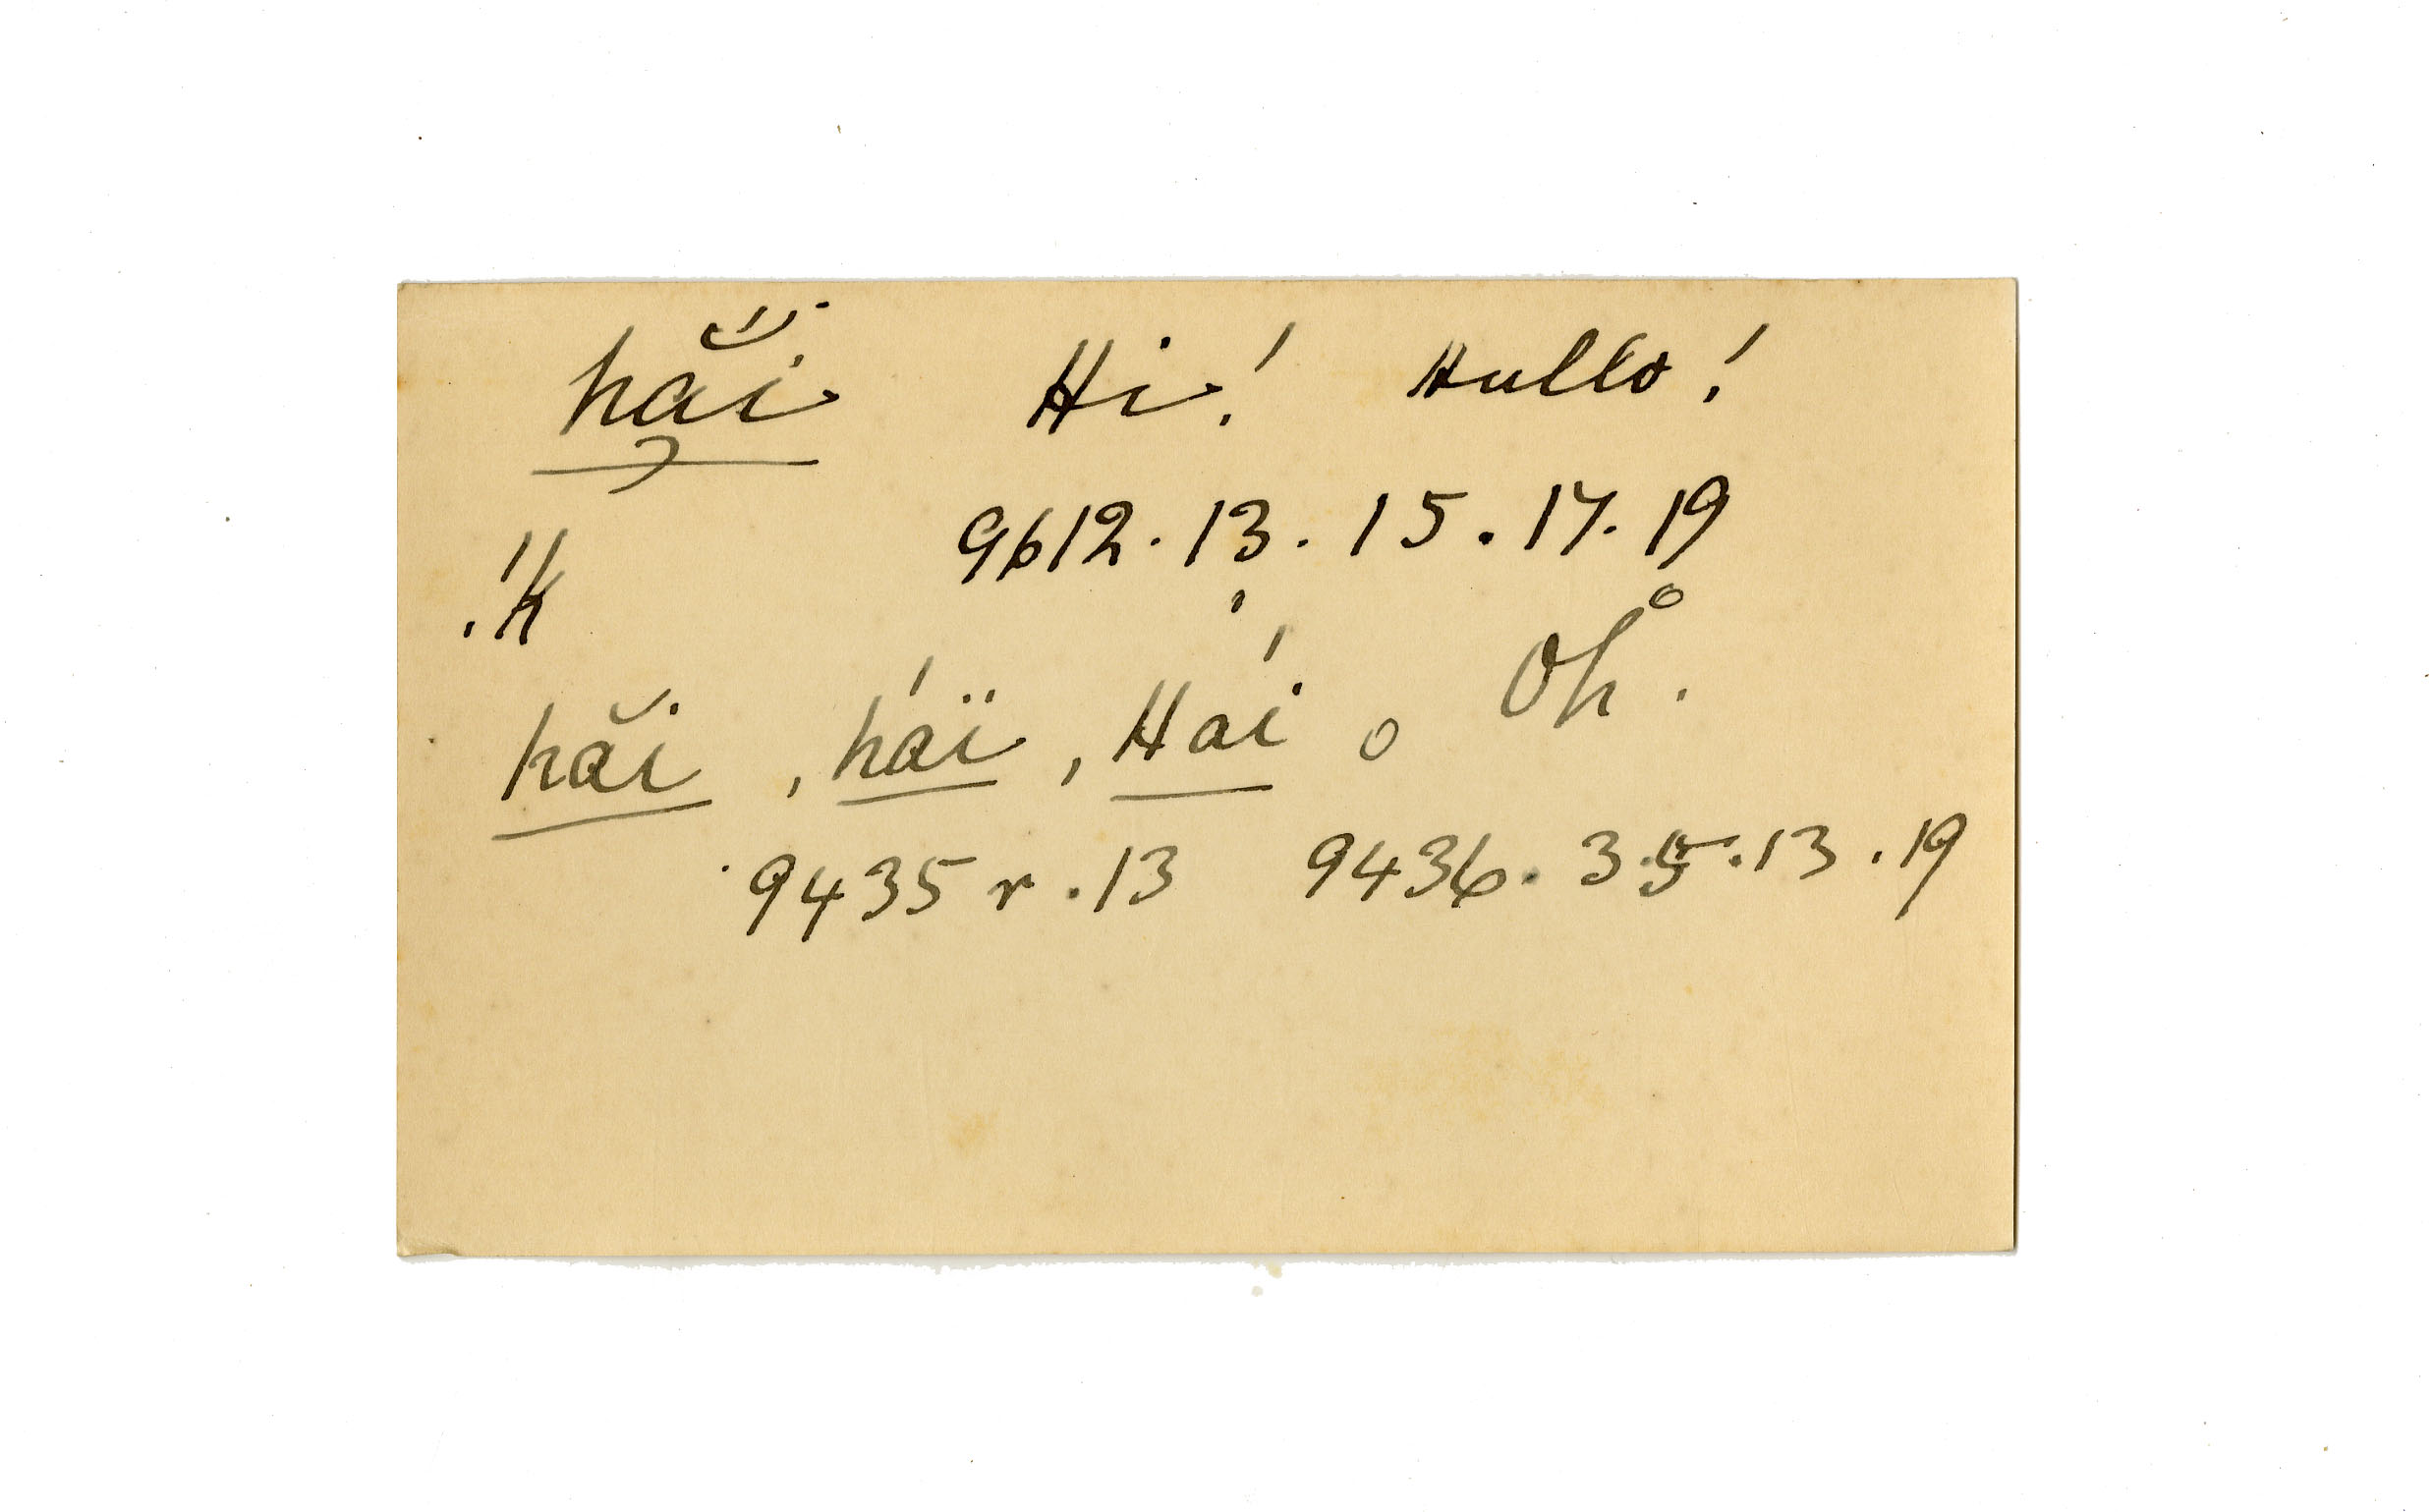 hăi Hi! Hullo!
9612. 13. 15. 17. 19
!k
hăi, háï, Hái o Oh.
9435 r. 13 9436. 3. 5. 13. 19